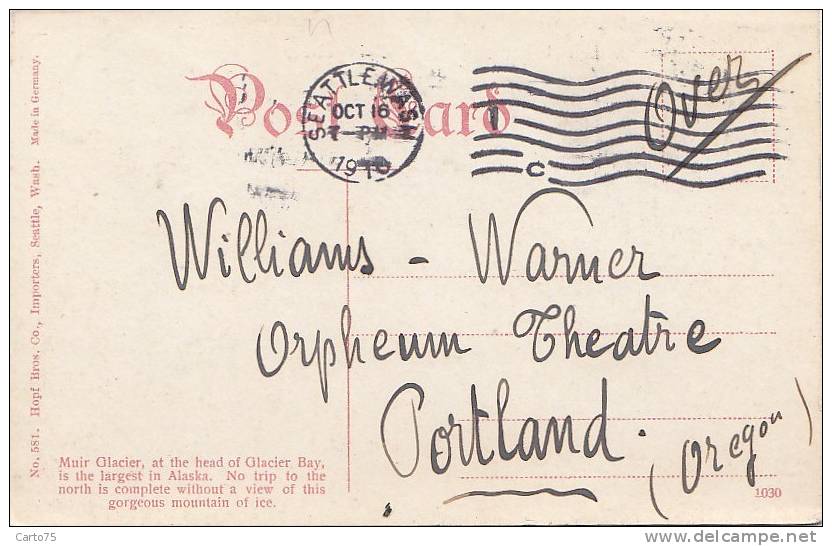 Post Card
SEATTLE, WASH
OCT 16
7-PM
1910
C
Over
Williams - Warner
Orpheum Theatre
Portland.
(Oregon)
No. 581. Hopf Bros. Co., Importers, Seattle, Wash. Made in Germany.
Muir Glacier, at the head of Glacier Bay,
is the largest in Alaska. No trip to the
north is complete without a view of this
gorgeous mountain of ice.
1030
Carto75
www.delcampe.net